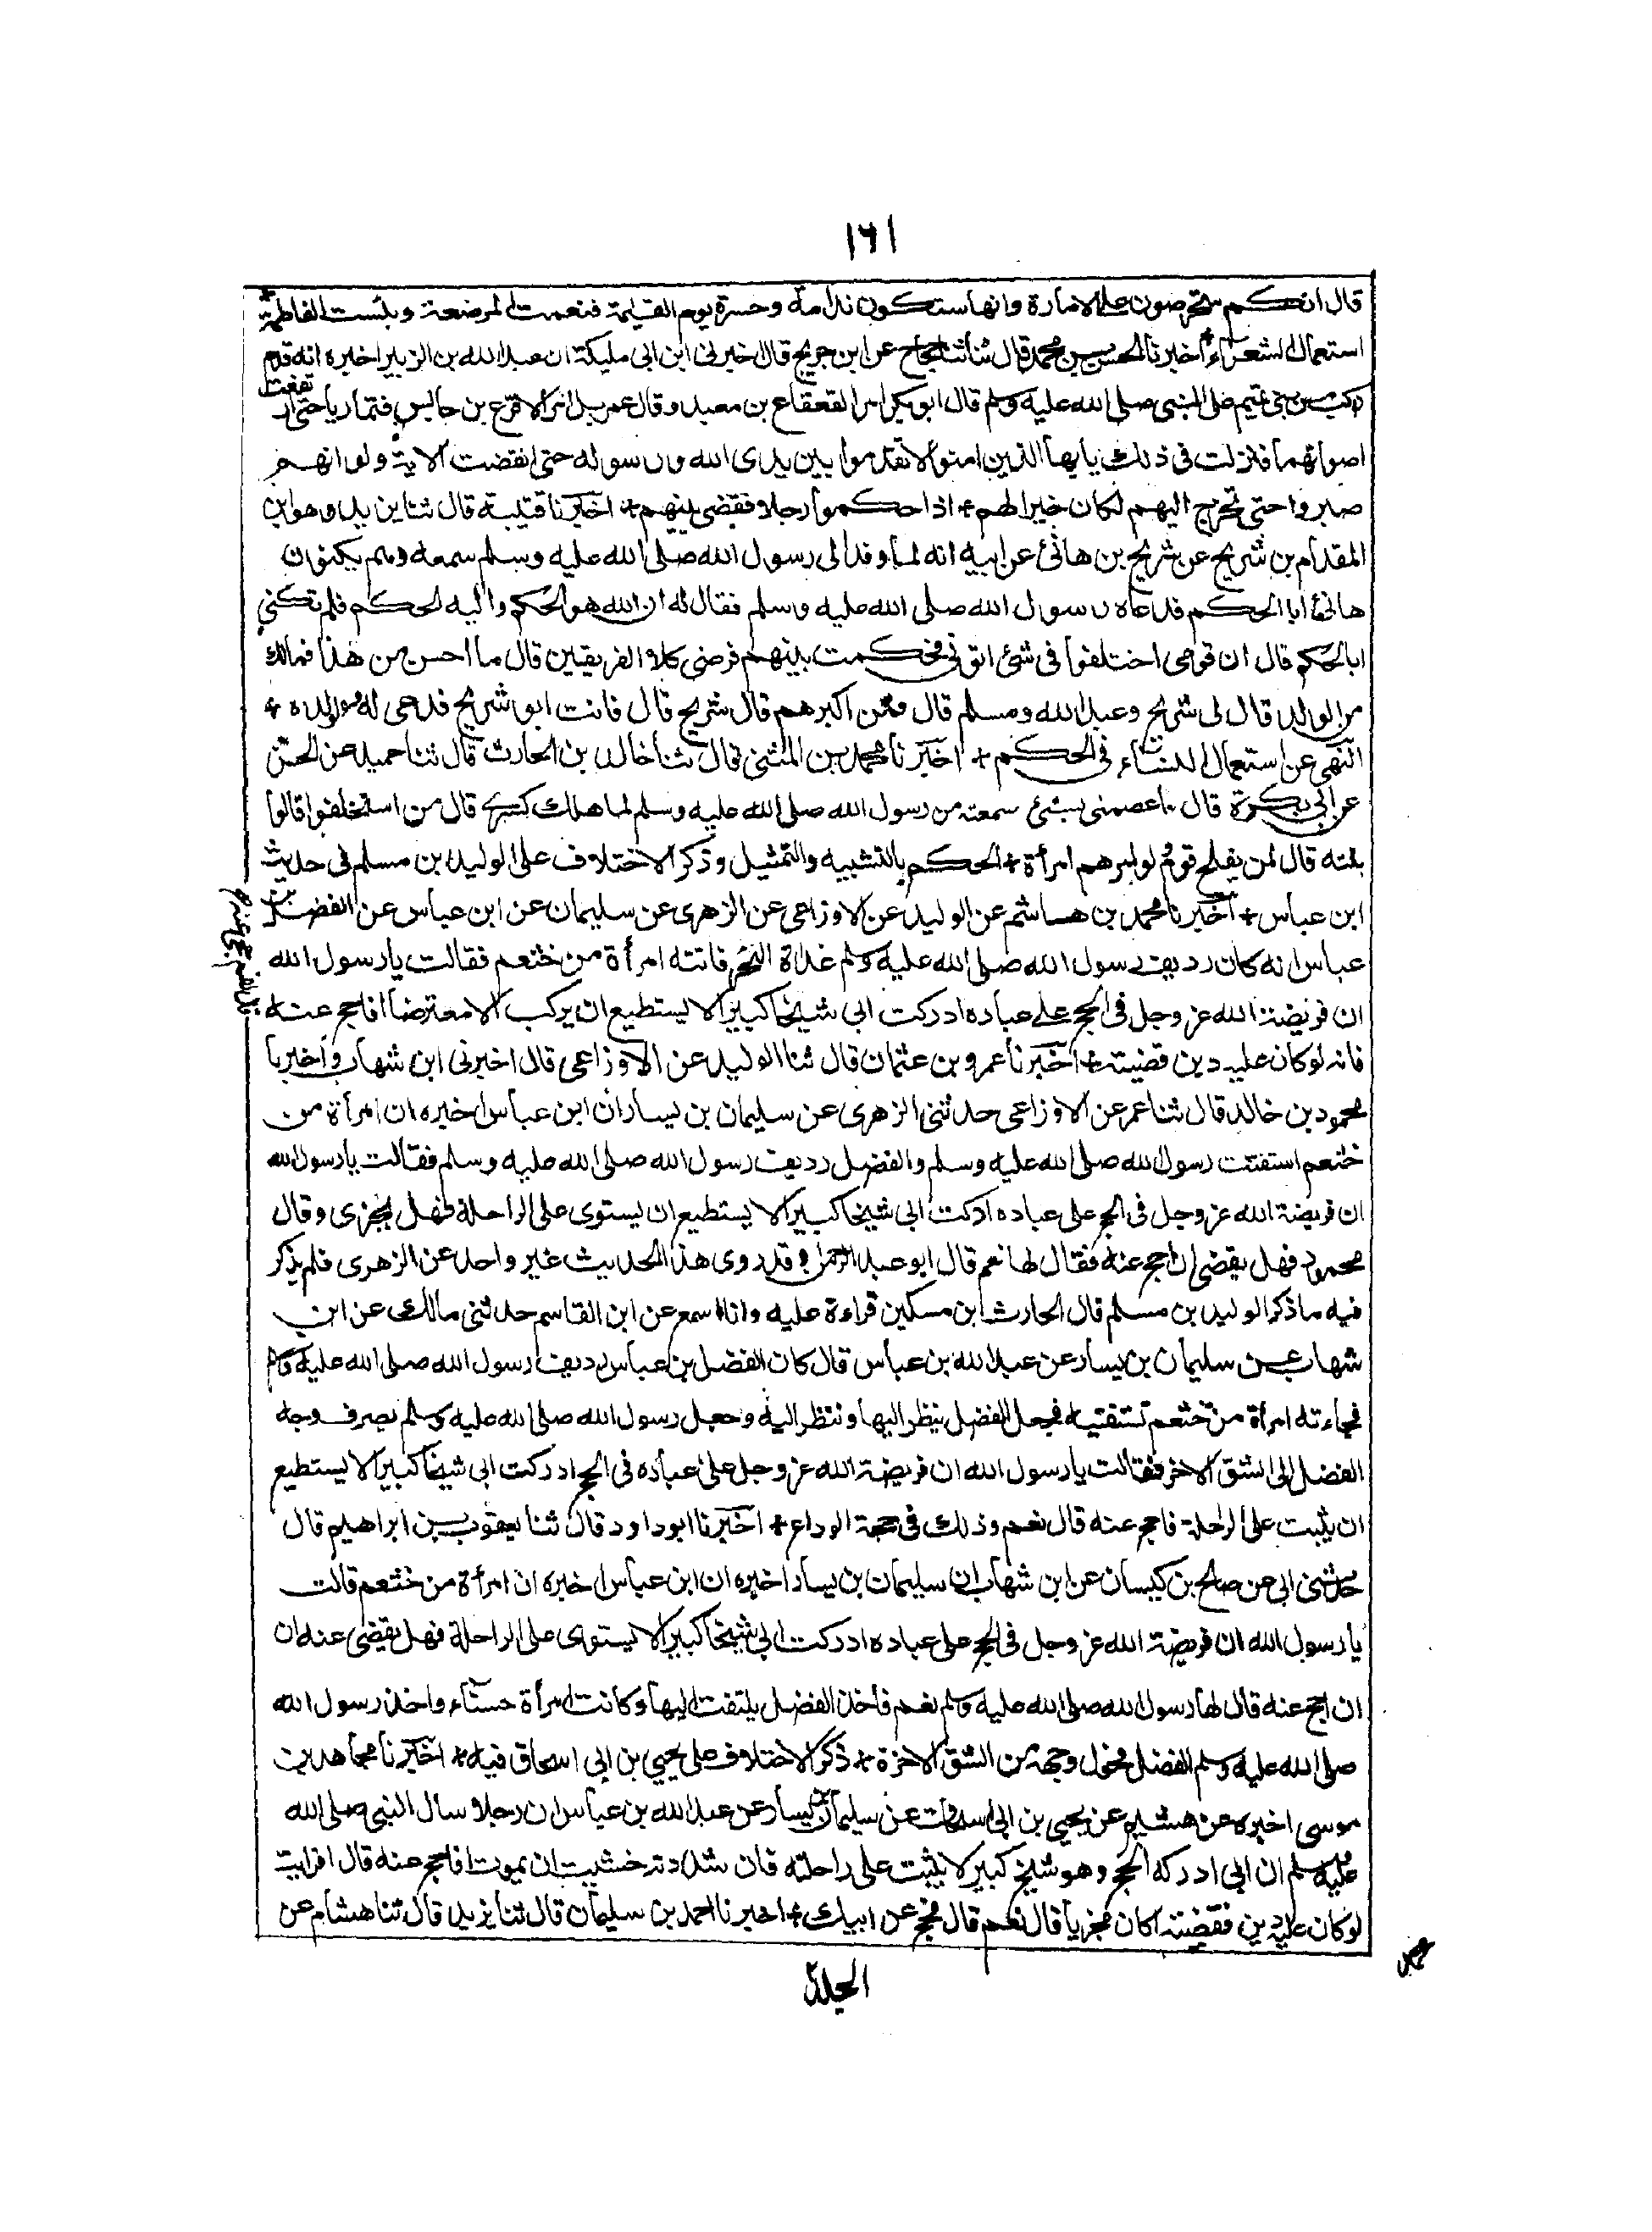 ١٦١
قال انكم ستحرصون على الامارة وانها ستكون ندامة وحسرة يوم القيمة فنعمت المرضعة وبئست الفاطمة +
استعمال الشعراء + اخبرنا الحسن بن محمد قال ثنا حجاج عن ابن جريج قال اخبرنى ابن ابى مليكة ان عبد الله بن الزبير اخبره انه قدم
ركب من بنى تميم على النبى صلى الله عليه وسلم قال ابو بكر امر القعقاع بن معبد وقال عمر بل امر الاقرع بن حابس فتماريا حتى ارتفعت
اصواتهما فنزلت فى ذلك يايها الذين امنوا لا تقدموا بين يدى الله ورسوله حتى انقضت الاية ولو انهم
صبروا حتى تخرج اليهم لكان خيرا لهم + اذا حكموا رجلا فقضى بينهم + اخبرنا قتيبة قال ثنا يزيد وهو ابن
المقدام بن شريح عن شريح بن هانئ عن ابيه انه لما وفد الى رسول الله صلى الله عليه وسلم سمعه وهم يكنون
هانئا ابا الحكم فدعاه رسول الله صلى الله عليه وسلم فقال له ان الله هو الحكم واليه الحكم فلم تكنى
ابا الحكم قال ان قومى اختلفوا فى شئ اتونى فحكمت بينهم فرضى كلا الفريقين قال ما احسن من هذا فمالك
من الولد قال لى شريح وعبد الله ومسلم قال فمن اكبرهم قال شريح قال فانت ابو شريح فدعى له ولولده +
النهى عن استعمال النساء فى الحكم + اخبرنا محمد بن المثنى قال ثنا خالد بن الحارث قال ثنا حميد عن الحسن
عن ابى بكرة قال عصمنى بشئ سمعته من رسول الله صلى الله عليه وسلم لما هلك كسرى قال من استخلفوا قالوا
بنته قال لن يفلح قوم ولوا امرهم امرأة + الحكم بالتشبيه والتمثيل وذكر الاختلاف على الوليد بن مسلم فى حديث
ابن عباس + اخبرنا محمد بن هاشم عن الوليد عن الاوزاعى عن الزهرى عن سليمان عن ابن عباس عن الفضل بن
عباس انه كان رديف رسول الله صلى الله عليه وسلم غداة النحر فاتته امرأة من خثعم فقالت يا رسول الله
ان فريضة الله عز وجل فى الحج على عباده ادركت ابى شيخا كبيرا لا يستطيع ان يركب الا معترضا افاحج عنه
فانه لو كان عليه دين قضيته + اخبرنا عمرو بن عثمان قال ثنا الوليد عن الاوزاعى قال اخبرنى ابن شهاب واخبرنا
محمود بن خالد قال ثنا عمر عن الاوزاعى حدثنى الزهرى عن سليمان بن يسار ان ابن عباس اخبره ان امرأة من
خثعم استفتت رسول الله صلى الله عليه وسلم والفضل رديف رسول الله صلى الله عليه وسلم فقالت يا رسول الله
ان فريضة الله عز وجل فى الحج على عباده ادركت ابى شيخا كبيرا لا يستطيع ان يستوى على الراحلة فهل يجزى وقال
محمود فهل يقضى ان احج عنه فقال لها نعم قال ابو عبد الرحمن وقد روى هذا الحديث غير واحد عن الزهرى فلم يذكر
فيه ما ذكر الوليد بن مسلم قال الحارث ابن مسكين قراءة عليه وانا اسمع عن ابن القاسم حدثنى مالك عن ابن
شهاب عن سليمان بن يسار عن عبد الله بن عباس قال كان الفضل بن عباس رديف رسول الله صلى الله عليه وسلم
فجاءته امرأة من خثعم تستفتيه فجعل الفضل ينظر اليها وتنظر اليه وجعل رسول الله صلى الله عليه وسلم يصرف وجه
الفضل الى الشق الاخر فقالت يا رسول الله ان فريضة الله عز وجل على عباده فى الحج ادركت ابى شيخا كبيرا لا يستطيع
ان يثبت على الراحلة فاحج عنه قال نعم وذلك فى حجة الوداع + اخبرنا ابو داود قال ثنا يعقوب بن ابراهيم قال
حدثنى ابى عن صالح بن كيسان عن ابن شهاب ان سليمان بن يسار اخبره ان ابن عباس اخبره ان امرأة من خثعم قالت
يا رسول الله ان فريضة الله عز وجل فى الحج على عباده ادركت ابى شيخا كبيرا لا يستوى على الراحلة فهل يقضى عنه ان
ان احج عنه قال لها رسول الله صلى الله عليه وسلم نعم فاخذ الفضل يلتفت اليها وكانت امرأة حسناء واخذ رسول الله
صلى الله عليه وسلم الفضل فحول وجهه من الشق الاخرة + ذكر الاختلاف على يحيى بن ابى اسحاق فيه + اخبرنا مجاهد بن
موسى اخبره عن هشيم عن يحيى بن ابى اسحاق عن سليمان بن يسار عن عبد الله بن عباس ان رجلا سال النبى صلى الله
عليه وسلم ان ابى ادركه الحج وهو شيخ كبير لا يثبت على راحلته فان شددته خشيت ان يموت افاحج عنه قال افرايت
لو كان عليه دين فقضيته اكان مجزيا قال نعم قال فحج عن ابيك + اخبرنا احمد بن سليمان قال ثنا يزيد قال ثنا هشام عن